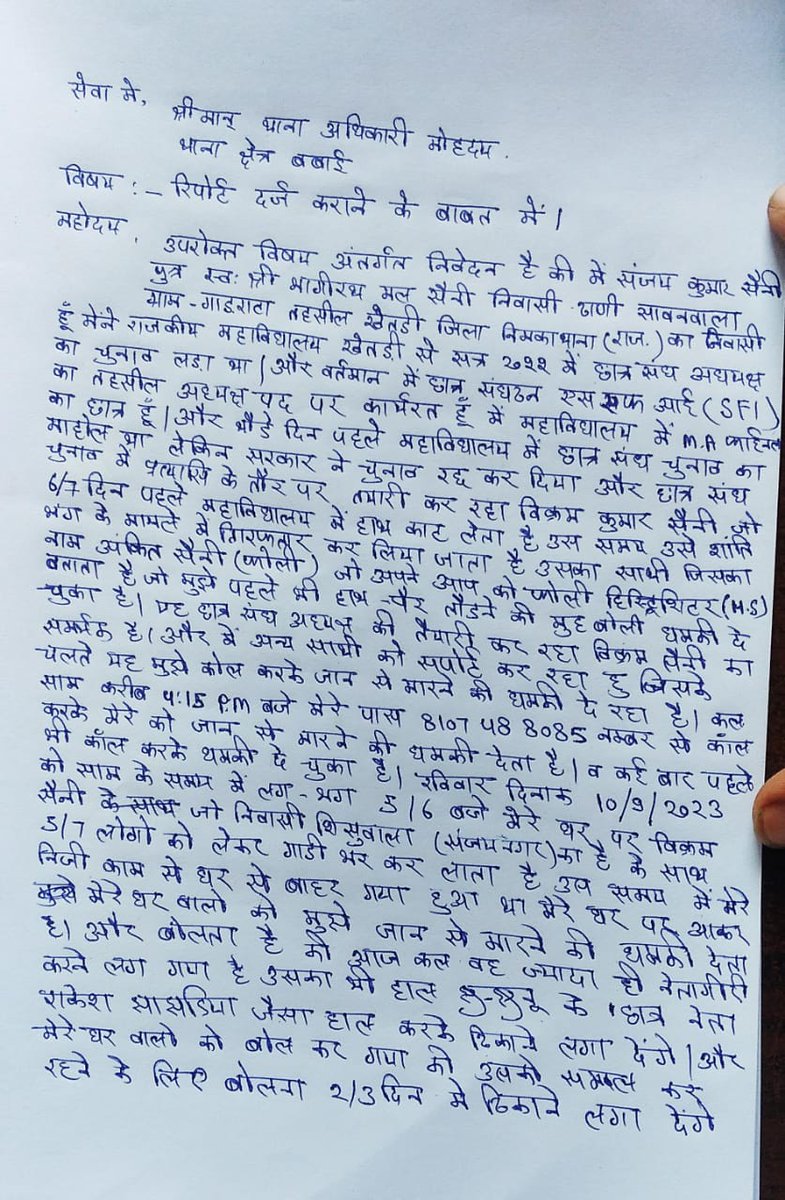 सेवा मे,
श्रीमान् थाना अधिकारी मोहदय.
थाना क्षेत्र बबाई
विषय :- रिपोर्ट दर्ज कराने के बाबत में।
महोदय,
उपरोक्त विषय अंतर्गत निवेदन है की में संजय कुमार सैनी
पुत्र स्व: श्री भागीरथ मल सैनी निवासी ढाणी सावनवाला
ग्राम - गाडराटा तहसील खेतडी जिला निमकाथाना (राज.) का निवासी
हूँ मेंने राजकीय महाविधालय खेतडी से सत्र २०२२ में छात्र संघ अधयक्ष
का चुनाव लडा था। और वर्तमान में छात्र संघठन एस एफ आई (SFI)
का तहसील अधयक्ष पद पर कार्यरत हूँ में महाविधालय में M.A फाईनल
का छात्र हूँ। और थोडे दिन पहले महाविधालय में छात्र संघ चुनाव का
माहोल था लेकिन सरकार ने चुनाव रद्द कर दिया और छात्र संघ
चुनाव में प्रत्याशि के तौर पर तयारी कर रहा विक्रम कुमार सैनी जो
6/7 दिन पहले महाविधालय में हाथ काट लेता है उस समय उसे शांति
भंग के मामले में गिरफ्तार कर लिया जाता है उसका साथी जिसका
नाम अंकित सैनी (जोली) जो अपने आप को जोली हिस्ट्रिशिटर (H.S)
बताता है जो मुझे पहले भी हाथ-पैर तौडने की मुह बोली धमकी दे
चुका है। यह छात्र संघ अधयक्ष की तैयारी कर रहा विक्रम सैनी का
समर्थक है। और में अन्य साथी को सपोर्ट कर रहा हु जिसके
चलते यह मुझे कोल करके जान से मारने की धमकी दे रहा है। कल
साम करीब 4:15 P.M बजे मेरे पास 8107488085 नम्बर से कॉल
करके मेरे को जान से मारने की धमकी देता है। व कई बार पहले
भी कॉल करके धमकी दे चुका है। रविवार दिनाक 10/9/2023
को साम के समय में लग-भग 5/6 बजे मेरे घर पर विक्रम
सैनी के साथ जो निवासी शिसुवाला (संजयनगर) का है के साथ
5/7 लोगो को लेकर गाडी भर कर लाता है उस समय में मेरे
निजी काम से घर से बाहर गया हुआ था मेरे घर पर आकर
मेरे घर वालो को मुझे जान से मारने की धमकी देता
है। और बोलता है की आज कल वह ज्यादा ही नेतागीरी
करने लग गया है उसका भी हाल झु-झुनू के छात्र नेता
राकेश झाझडिया जैसा हाल करके ठिकाने लगा देंगे। और
मेरे घर वालो को बोल कर गया की उसको सम्भल कर
रहने के लिए बोलना 2/3 दिन मे ठिकाने लगा देंगे